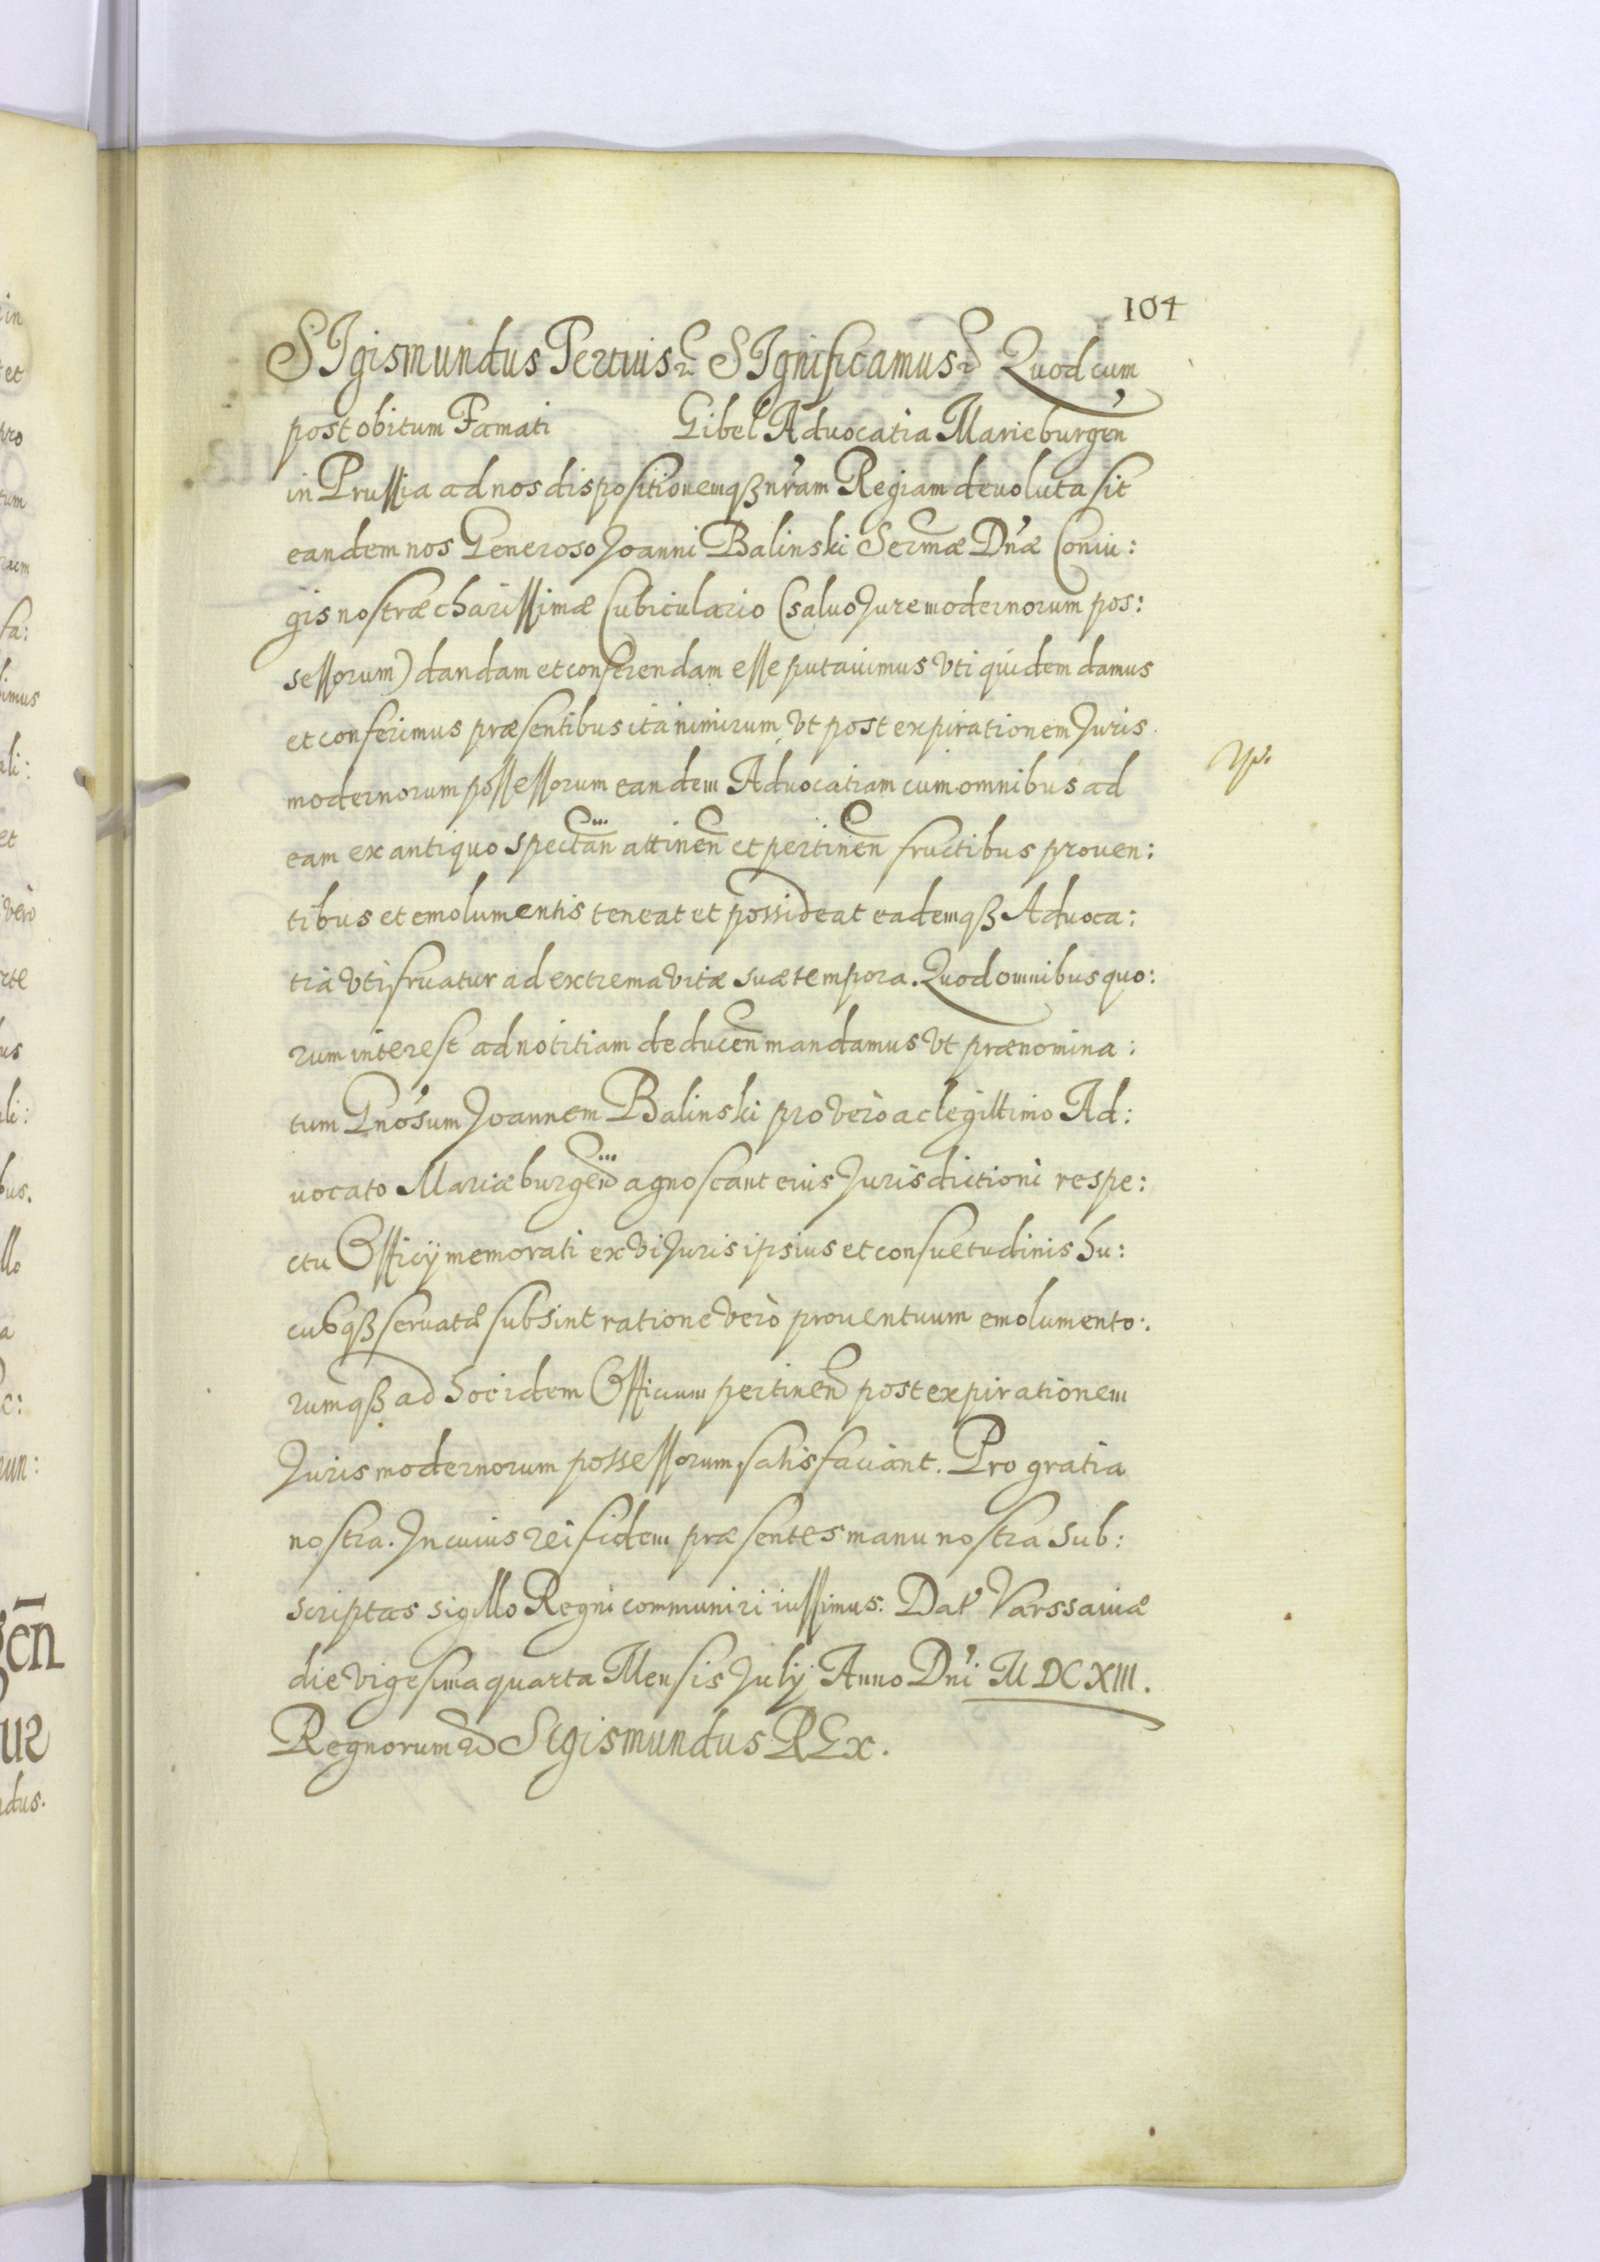 104
SIgismundus Tertius etc SIgnificamus etc Quod cum
post obitum Famati Gibel Advocatia Marieburgen
in Prussia ad nos dispositionemqꝫ nram Regiam devoluta sit
eandem nos Generoso Joanni Balinski Sermæ Dnæ Coniu:
gis nostræ charissimæ Cubiculario (saluo Jure modernorum pos:
sessorum) dandam et conferendam esse putauimus Vti quidem damus
et conferimus præsentibus ita nimirum Vt post expirationem Juris
modernorum possessorum eandem Advocatiam cum omnibus ad
eam ex antiquo spectan attinen et pertinen fructibus prouen:
tibus et emolumentis teneat et possideat eademqꝫ Advoca:
tia Vti fruatur ad extrema Vitæ suæ tempora. Quod omnibus quo:
rum interest ad notitiam deducen mandamus Vt prænomina:
tum Gnosum Joannem Balinski pro Vero ac legittimo Ad:
uocato Mariæburgen agnoscant eius Jurisdictioni respe:
ctu Officij memorati ex Vi Juris ipsius et consuetudinis hu:
cusqꝫ seruatæ subsint ratione Vero prouentuum emolumento:
rumqꝫ ad hoc idem Officium pertinen post expirationem
Juris modernorum possessorum satisfaciant. Pro gratia
nostra. In cuius rei fidem præsentes manu nostra sub:
scriptas sigillo Regni communiri iussimus. Dat Varssauiæ
die Vigesima quarta Mensis Julij Anno Dni MDCXIII.
Regnorum etc SIgismundus REx.